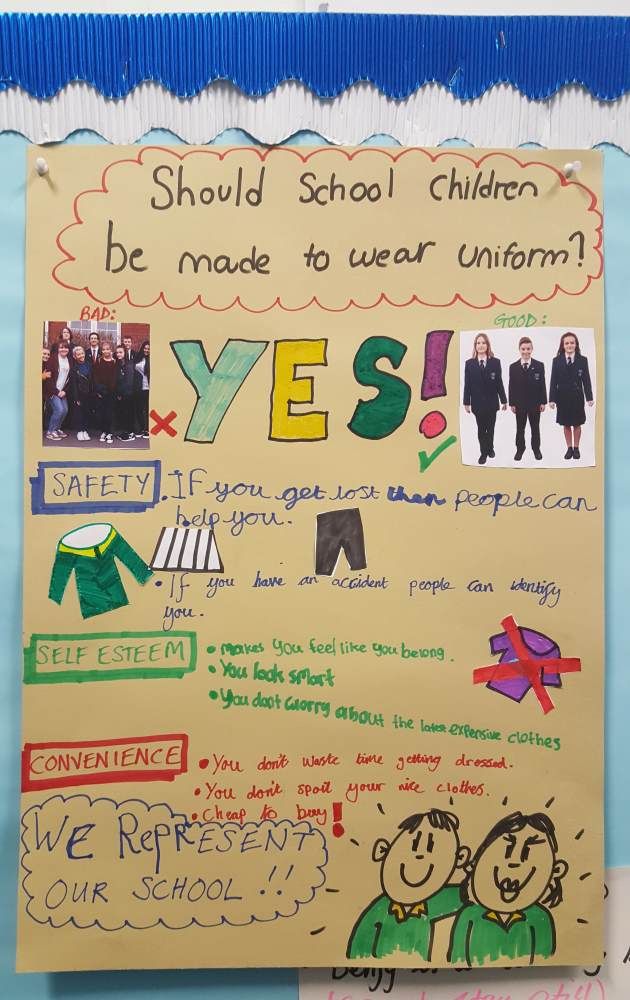 Should School Children
be made to wear uniform?
BAD:
GOOD:
YES!
SAFETY
• If you get lost then people can
help you.
• If you have an accident people can identify
you.
SELF ESTEEM
• Makes you feel like you belong.
• You look smart
• You dont worry about the latest expensive clothes
CONVENIENCE
• You don't waste time getting dressed.
• You don't spoil your nice clothes.
• Cheap to buy!
WE RepRESENT
OUR SCHOOL!!